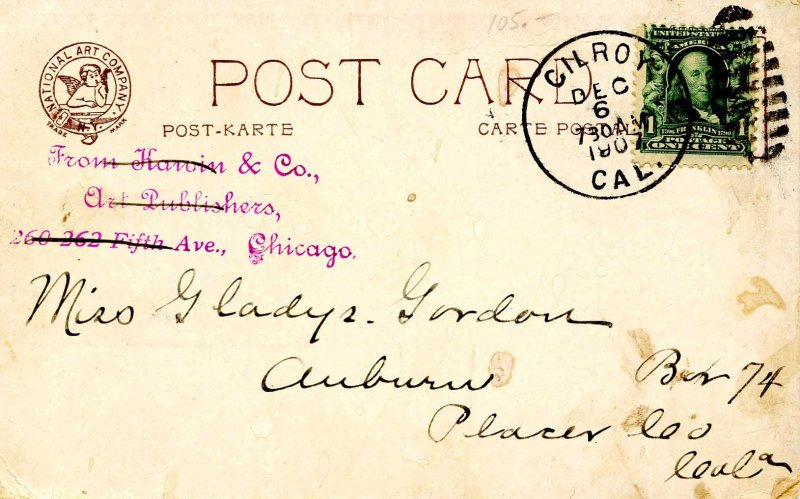 105.-
NATIONAL ART COMPANY
N.Y.
TRADE MARK
POST CARD
POST-KARTE
CARTE POSTALE
GILROY
DEC
6
730AM
1907
CAL.
UNITED STATES
AMERICA
1 FRANKLIN 1
POSTAGE
ONE CENT
From Kawin & Co.,
Art Publishers,
260-262 Fifth Ave., Chicago.
Miss Gladys. Gordon
Auburn Box 74
Placer Co
Cala